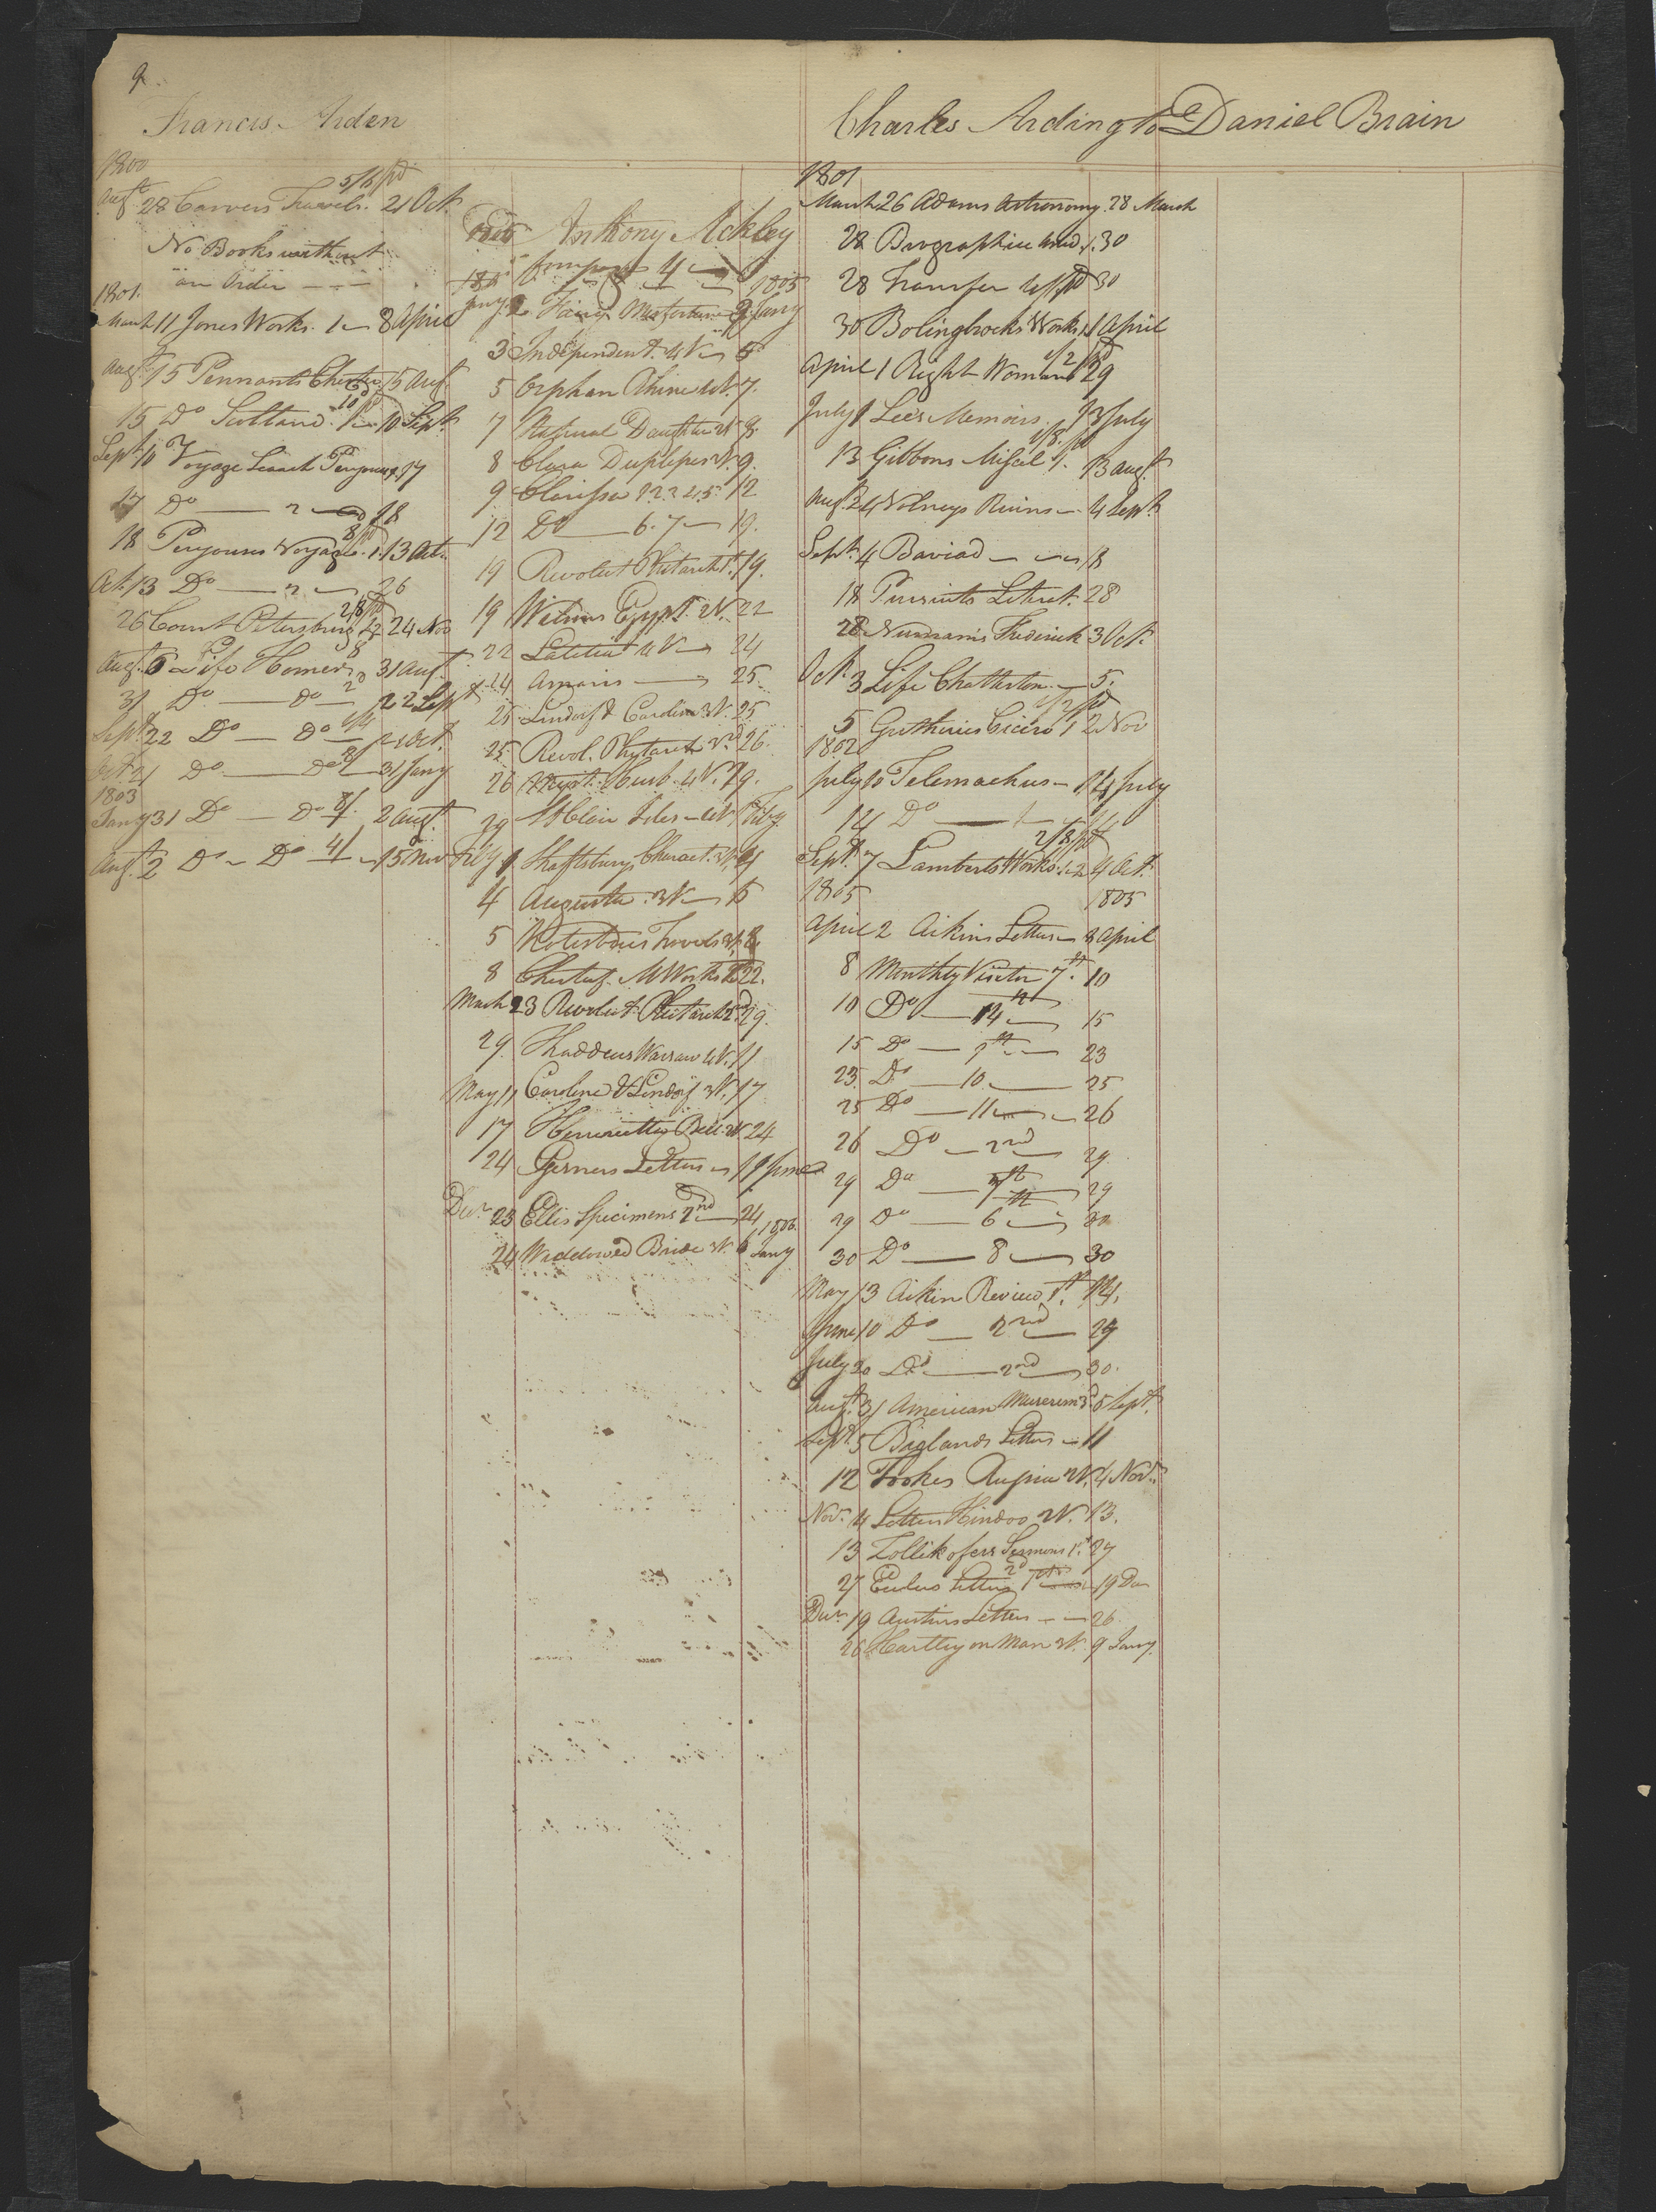 9.
Francis Arden
1800
5/6 pd
Augt 28 Carvers Travels. 21 Oct.
No Books without
an Order
1801.
March 11 Jones Works. 1 8 April
Augt 15 Pennants Chester 15 Augt
15 Do Scotland 10 Sept
Sept 10 Voyage Search Perouse 17
17 Do 2 18
18 Perouses Voyage. 1. 13 Oct.
Oct. 13 Do 2 26
2/8 pd
26 Court Petersburg 24 Nov
Augt 6 Life Homer 31 Augt.
31 Do Do 2 22 Sept
Sept 22 Do Do 21 Oct.
Oct 21 Do Do 31 Jany
1803
Jany 31 Do Do 2 Augt
Augt. 2 Do Do 4/ 15 Nov
Anthony Ackley
1805
Jany 2 3 Jany
3 Independent. 4 V 5
5 Orphan Rhine 4 V. 7.
7 Natural Daughter 2 V 8.
8 Clara Duplesis 3 V. 9.
9 Clarissa 1 2 3 4 5 12
12 Do 6. 7 19.
19 Revolut Plutarch 1st. 19.
19 Wilsons Egypt. 2 V. 22
22 Latitia 4 V 24
24 Amaris 25.
25 Lindorf & Caroline 3 V. 25
25 Revol. Plutarch 2nd 26.
26 Curb. 4 V. 29.
29 St Clair Isles 4 V. 1 Feby.
Feby 1 Shaftsburys Charact. 3 V. 4
4 Augusta. 3 V 5
5 Kotzebues Travels 3 V. 8.
8 Chesterf. M Works 22.
March 23 Revolut Plutarch 2d. 29.
29. Thaddeus Warsaw 4 V. 11
May 11 Caroline & Lindorf 3 V. 17
17 Henrietta Bell 2 V. 24
24 Letters 19 June
Decr 23 Ellis Specimens 2nd 24
1806.
24 Widdowed Bride 3 V. 6 Jany
Charles Ardington
1801
March 26 Adams Astronomy. 28 March
28 Biographia 1. 30
28 Transfer 30
30 Bolingbrocks Works 1 1 April
1/2 pd
April 1 Right Woman 29
July 1 Lees Memoirs. 13 July
1/3 pd
13 Gibbons Miscel 1. 13 Augt.
Augt. 24 Volneys Ruins 4 Sept
Sept. 4 Baviad 18
18 Pursuits Literat. 28
28 Numanis Frederick 3 Oct.
Oct. 3 Life Chatterton. 5.
1/2 pd
5 Guthries Cicero 1 2 Nov
1802
July 10 Telemachus 14 July
14 Do
2/8 pd
Sept. 7 Lamberts Works. 1. 2 4 Oct.
1805 1805
April 2 Aikins Letters 8 April
8 Monthly Visitor 7th. 10
10 Do 14th 15
15 Do 9th 23
23. Do 10 25
25 Do 11 26
26 Do 2nd 29.
29 Do 7th 29
29 Do 6 30
30 Do 8 30
May 13 Aikin Review 1st. 14.
June 10 Do 2nd 29
July 20 Do 2nd 30.
Augt. 31 American Museum 3d 5 Sept.
Sept 5 Biglands Letters 11
12 Tookes Russia 2 V. 4 Nov.
Nov. 4 Letters Hindoo 2 V. 13.
13 Zollikofers Sermons 1st 27
27 Eulers Letters 2d 19 Dec
Decr 19 Austins Letters 26.
26 Hartley on Man 3 V. 9 Jany.
Daniel Brain